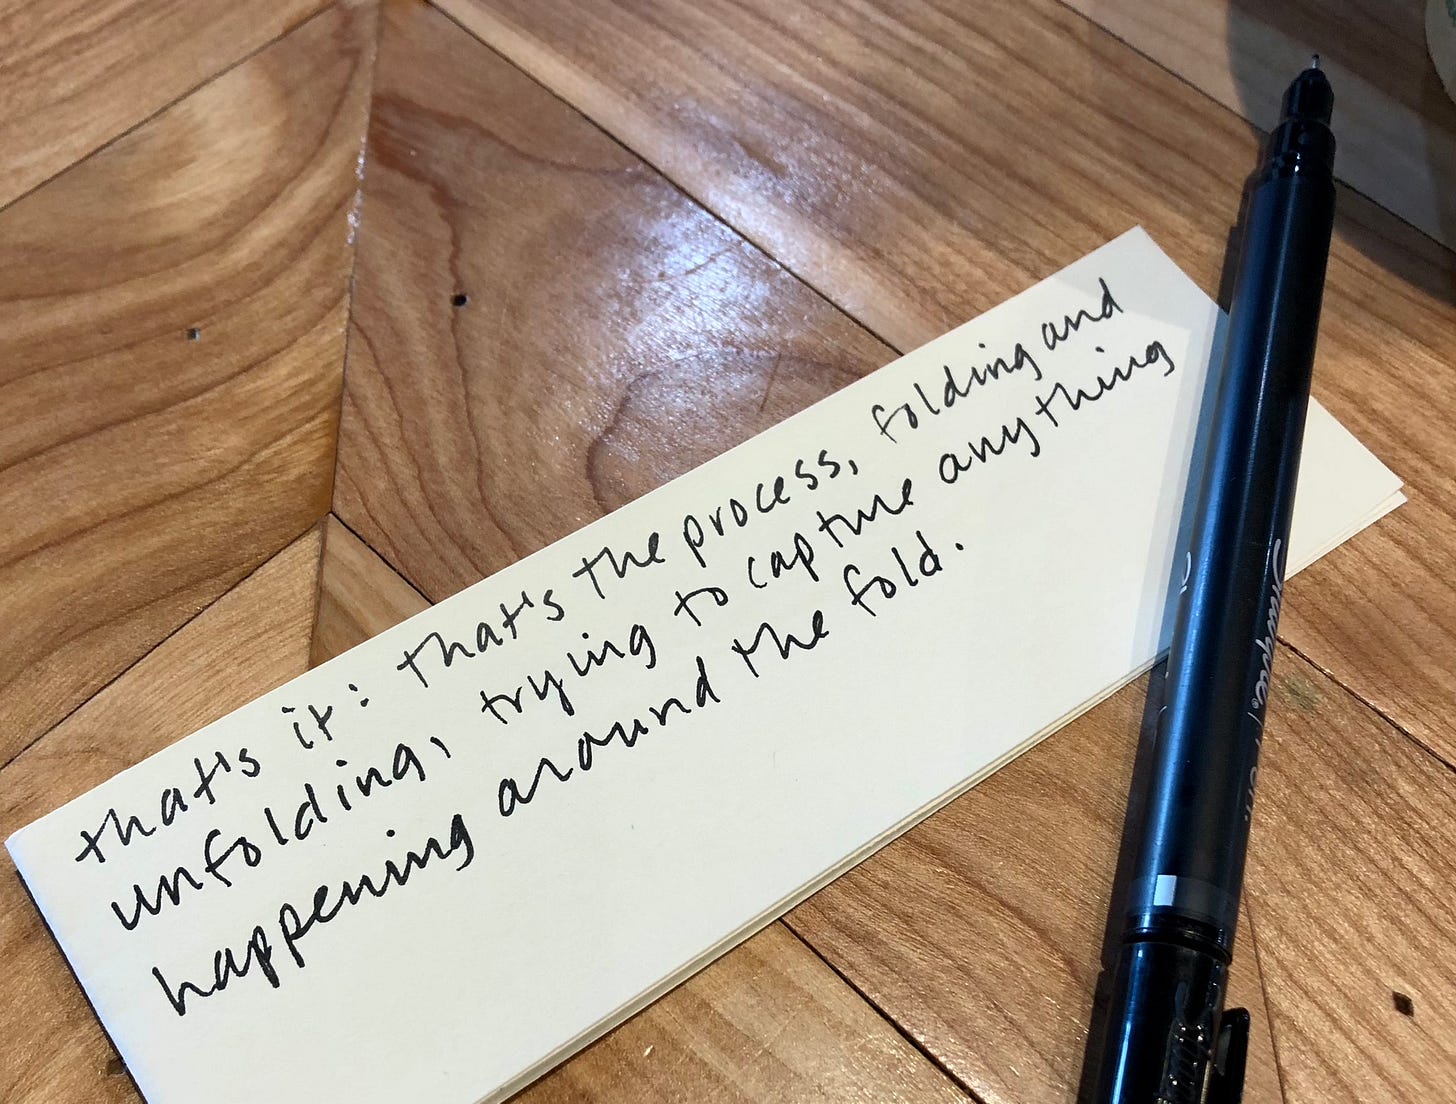 that's it: that's the process, folding and
unfolding, trying to capture anything
happening around the fold.
Sharpie. Pen